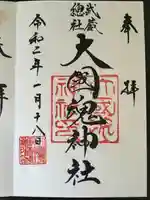 奉拝
武蔵
總社
大國魂神社
令和二年一月十八日